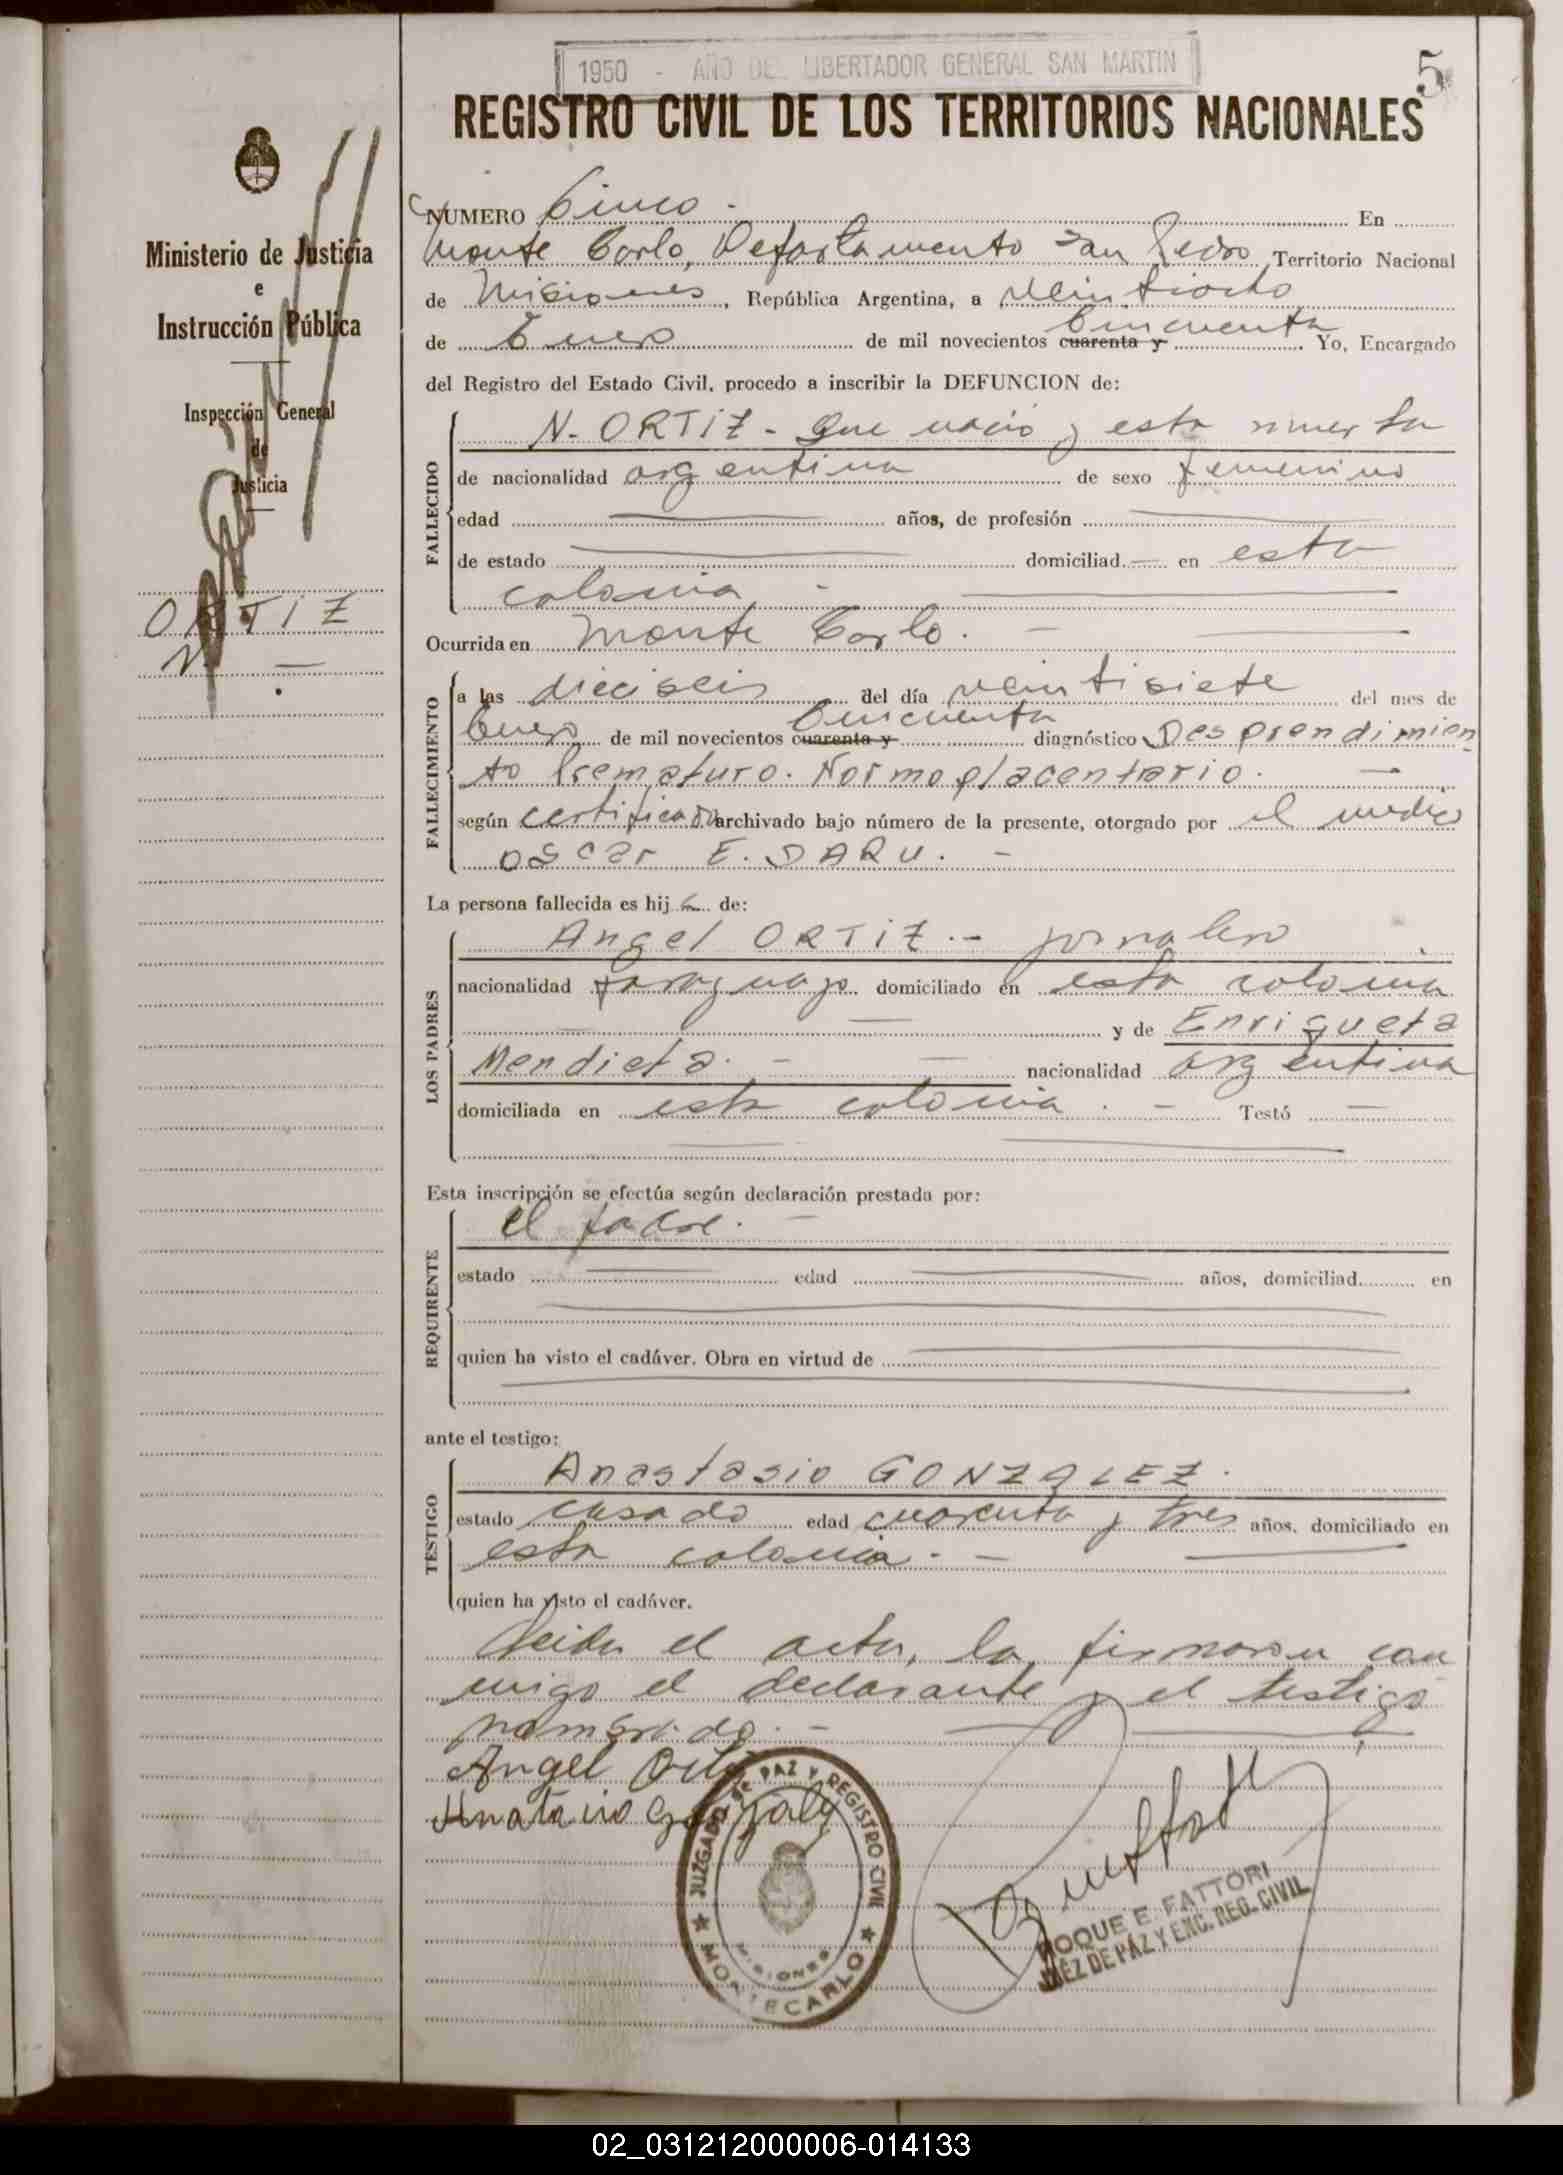 1950 - AÑO DEL LIBERTADOR GENERAL SAN MARTIN
5
REGISTRO CIVIL DE LOS TERRITORIOS NACIONALES
Ministerio de Justicia
e
Instrucción Pública
Inspección General
de
Justicia
ORTIZ
N. —
NUMERO Cinco. En
Monte Carlo, Departamento San Pedro Territorio Nacional
de Misiones, República Argentina, a veintiocho
de Enero de mil novecientos cuarenta y Cincuenta Yo, Encargado
del Registro del Estado Civil, procedo a inscribir la DEFUNCION de:
FALLECIDO
N. ORTIZ - Que nació y esta muerta
de nacionalidad argentina de sexo femenino
edad — años, de profesión —
de estado — domiciliad — en esta
colonia. —
Ocurrida en Monte Carlo. —
FALLECIMIENTO
a las dieciseis del día veintisiete del mes de
Enero de mil novecientos cuarenta y Cincuenta diagnóstico Desprendimien-
to Prematuro. Normoplacentario. —
según certificado archivado bajo número de la presente, otorgado por el medico
Oscar E. DARU. —
La persona fallecida es hij a de:
LOS PADRES
Angel ORTIZ. - jornalero
nacionalidad paraguayo domiciliado en esta colonia
— — y de Enriqueta
Mendieta. — nacionalidad argentina
domiciliada en esta colonia. — Testó —
Esta inscripción se efectúa según declaración prestada por:
REQUIRENTE
el padre. —
estado — edad — años, domiciliad en
quien ha visto el cadáver. Obra en virtud de —
ante el testigo:
TESTIGO
Anastasio GONZALEZ.
estado casado edad cuarenta y tres años, domiciliado en
esta colonia. —
quien ha visto el cadáver.
Leida el acta, la firmaron con
migo el declarante y el testigo
nombrado. —
Angel Ortiz
Anatacio Gonzalez
JUZGADO de PAZ Y REGISTRO CIVIL
MISIONES
MONTECARLO
ROQUE E. FATTORI
JUEZ DE PAZ Y ENC. REG. CIVIL
02_031212000006-014133